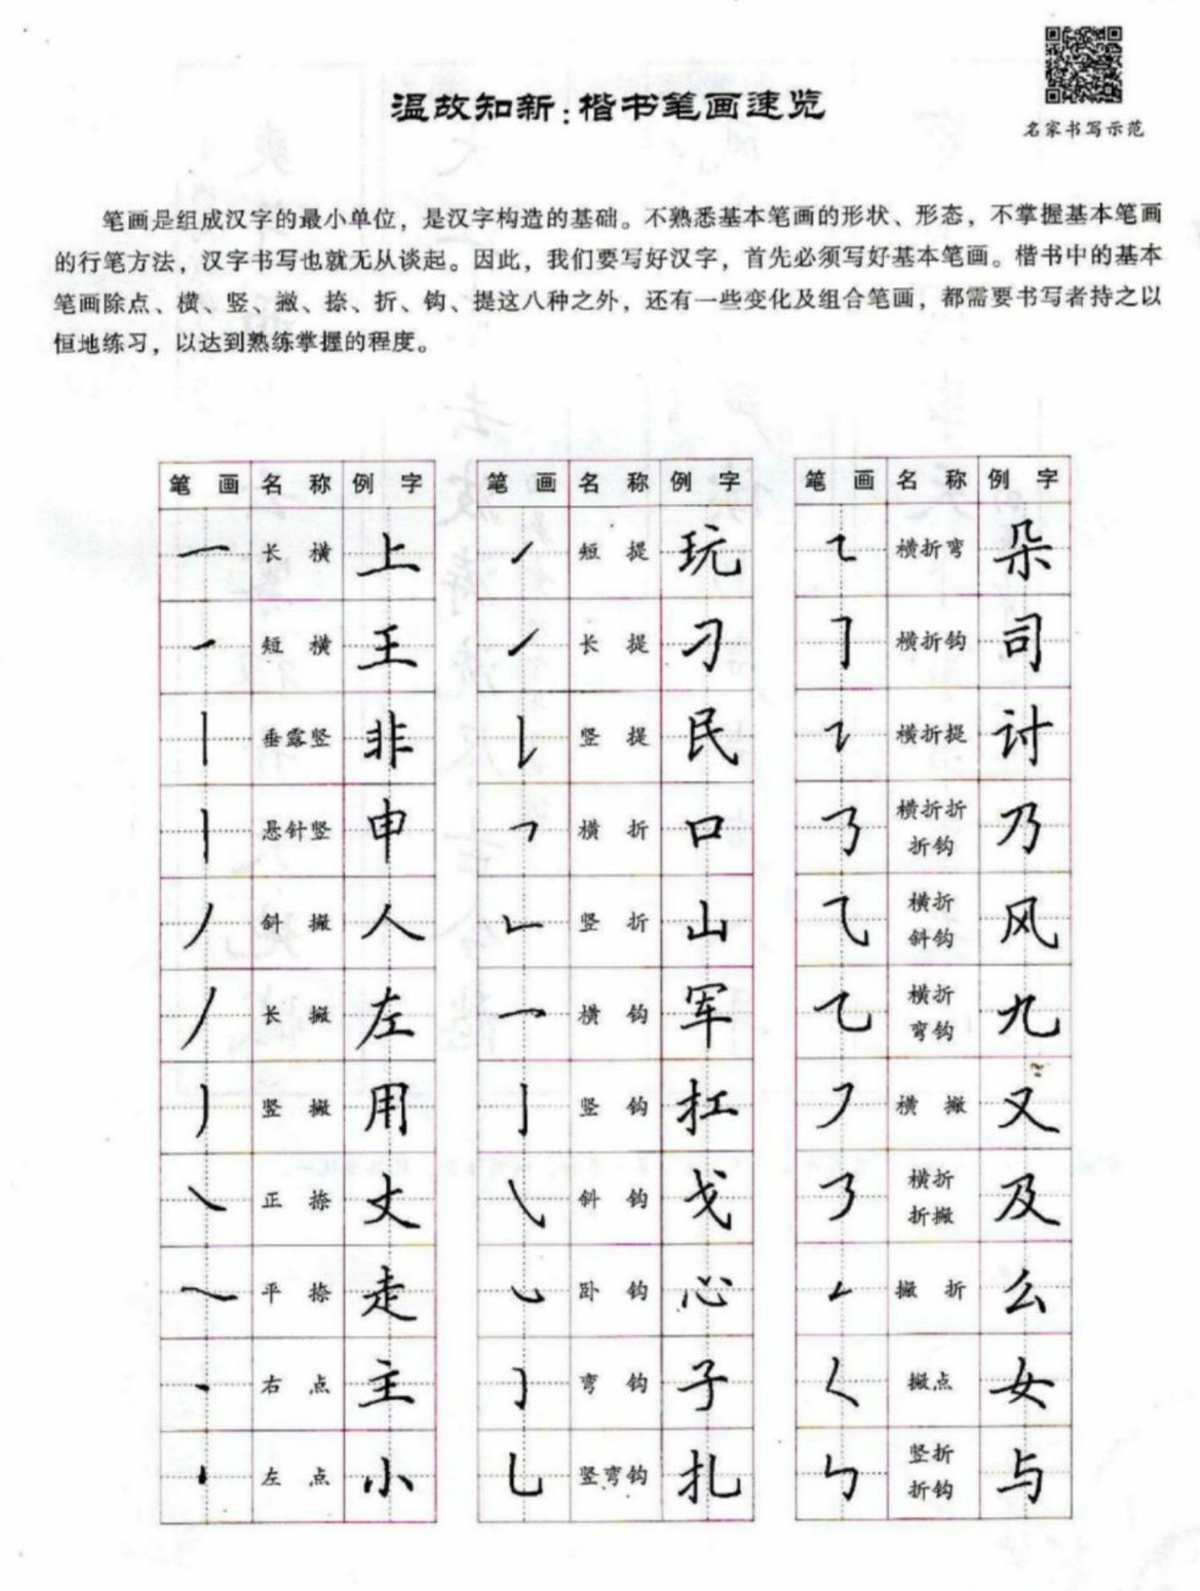 温故知新：楷书笔画速览
名家书写示范
笔画是组成汉字的最小单位，是汉字构造的基础。不熟悉基本笔画的形状、形态，不掌握基本笔画
的行笔方法，汉字书写也就无从谈起。因此，我们要写好汉字，首先必须写好基本笔画。楷书中的基本
笔画除点、横、竖、撇、捺、折、钩、提这八种之外，还有一些变化及组合笔画，都需要书写者持之以
恒地练习，以达到熟练掌握的程度。
笔画 名称 例字
一 长横 上
一 短横 王
丨 垂露竖 非
丨 悬针竖 申
丿 斜撇 人
丿 长撇 左
丿 竖撇 用
㇏ 正捺 丈
㇏ 平捺 走
丶 右点 主
丶 左点 小
笔画 名称 例字
㇀ 短提 玩
㇀ 长提 刁
𠄌 竖提 民
𠃍 横折 口
𠃊 竖折 山
乛 横钩 军
亅 竖钩 扛
㇂ 斜钩 戈
㇃ 卧钩 心
㇁ 弯钩 子
乚 竖弯钩 扎
笔画 名称 例字
㇍ 横折弯 朵
𠃌 横折钩 司
㇊ 横折提 讨
𠄎 横折折
折钩 乃
⺄ 横折
斜钩 风
乙 横折
弯钩 九
㇇ 横撇 又
㇋ 横折
折撇 及
𠃋 撇折 么
𡿨 撇点 女
㇉ 竖折
折钩 与